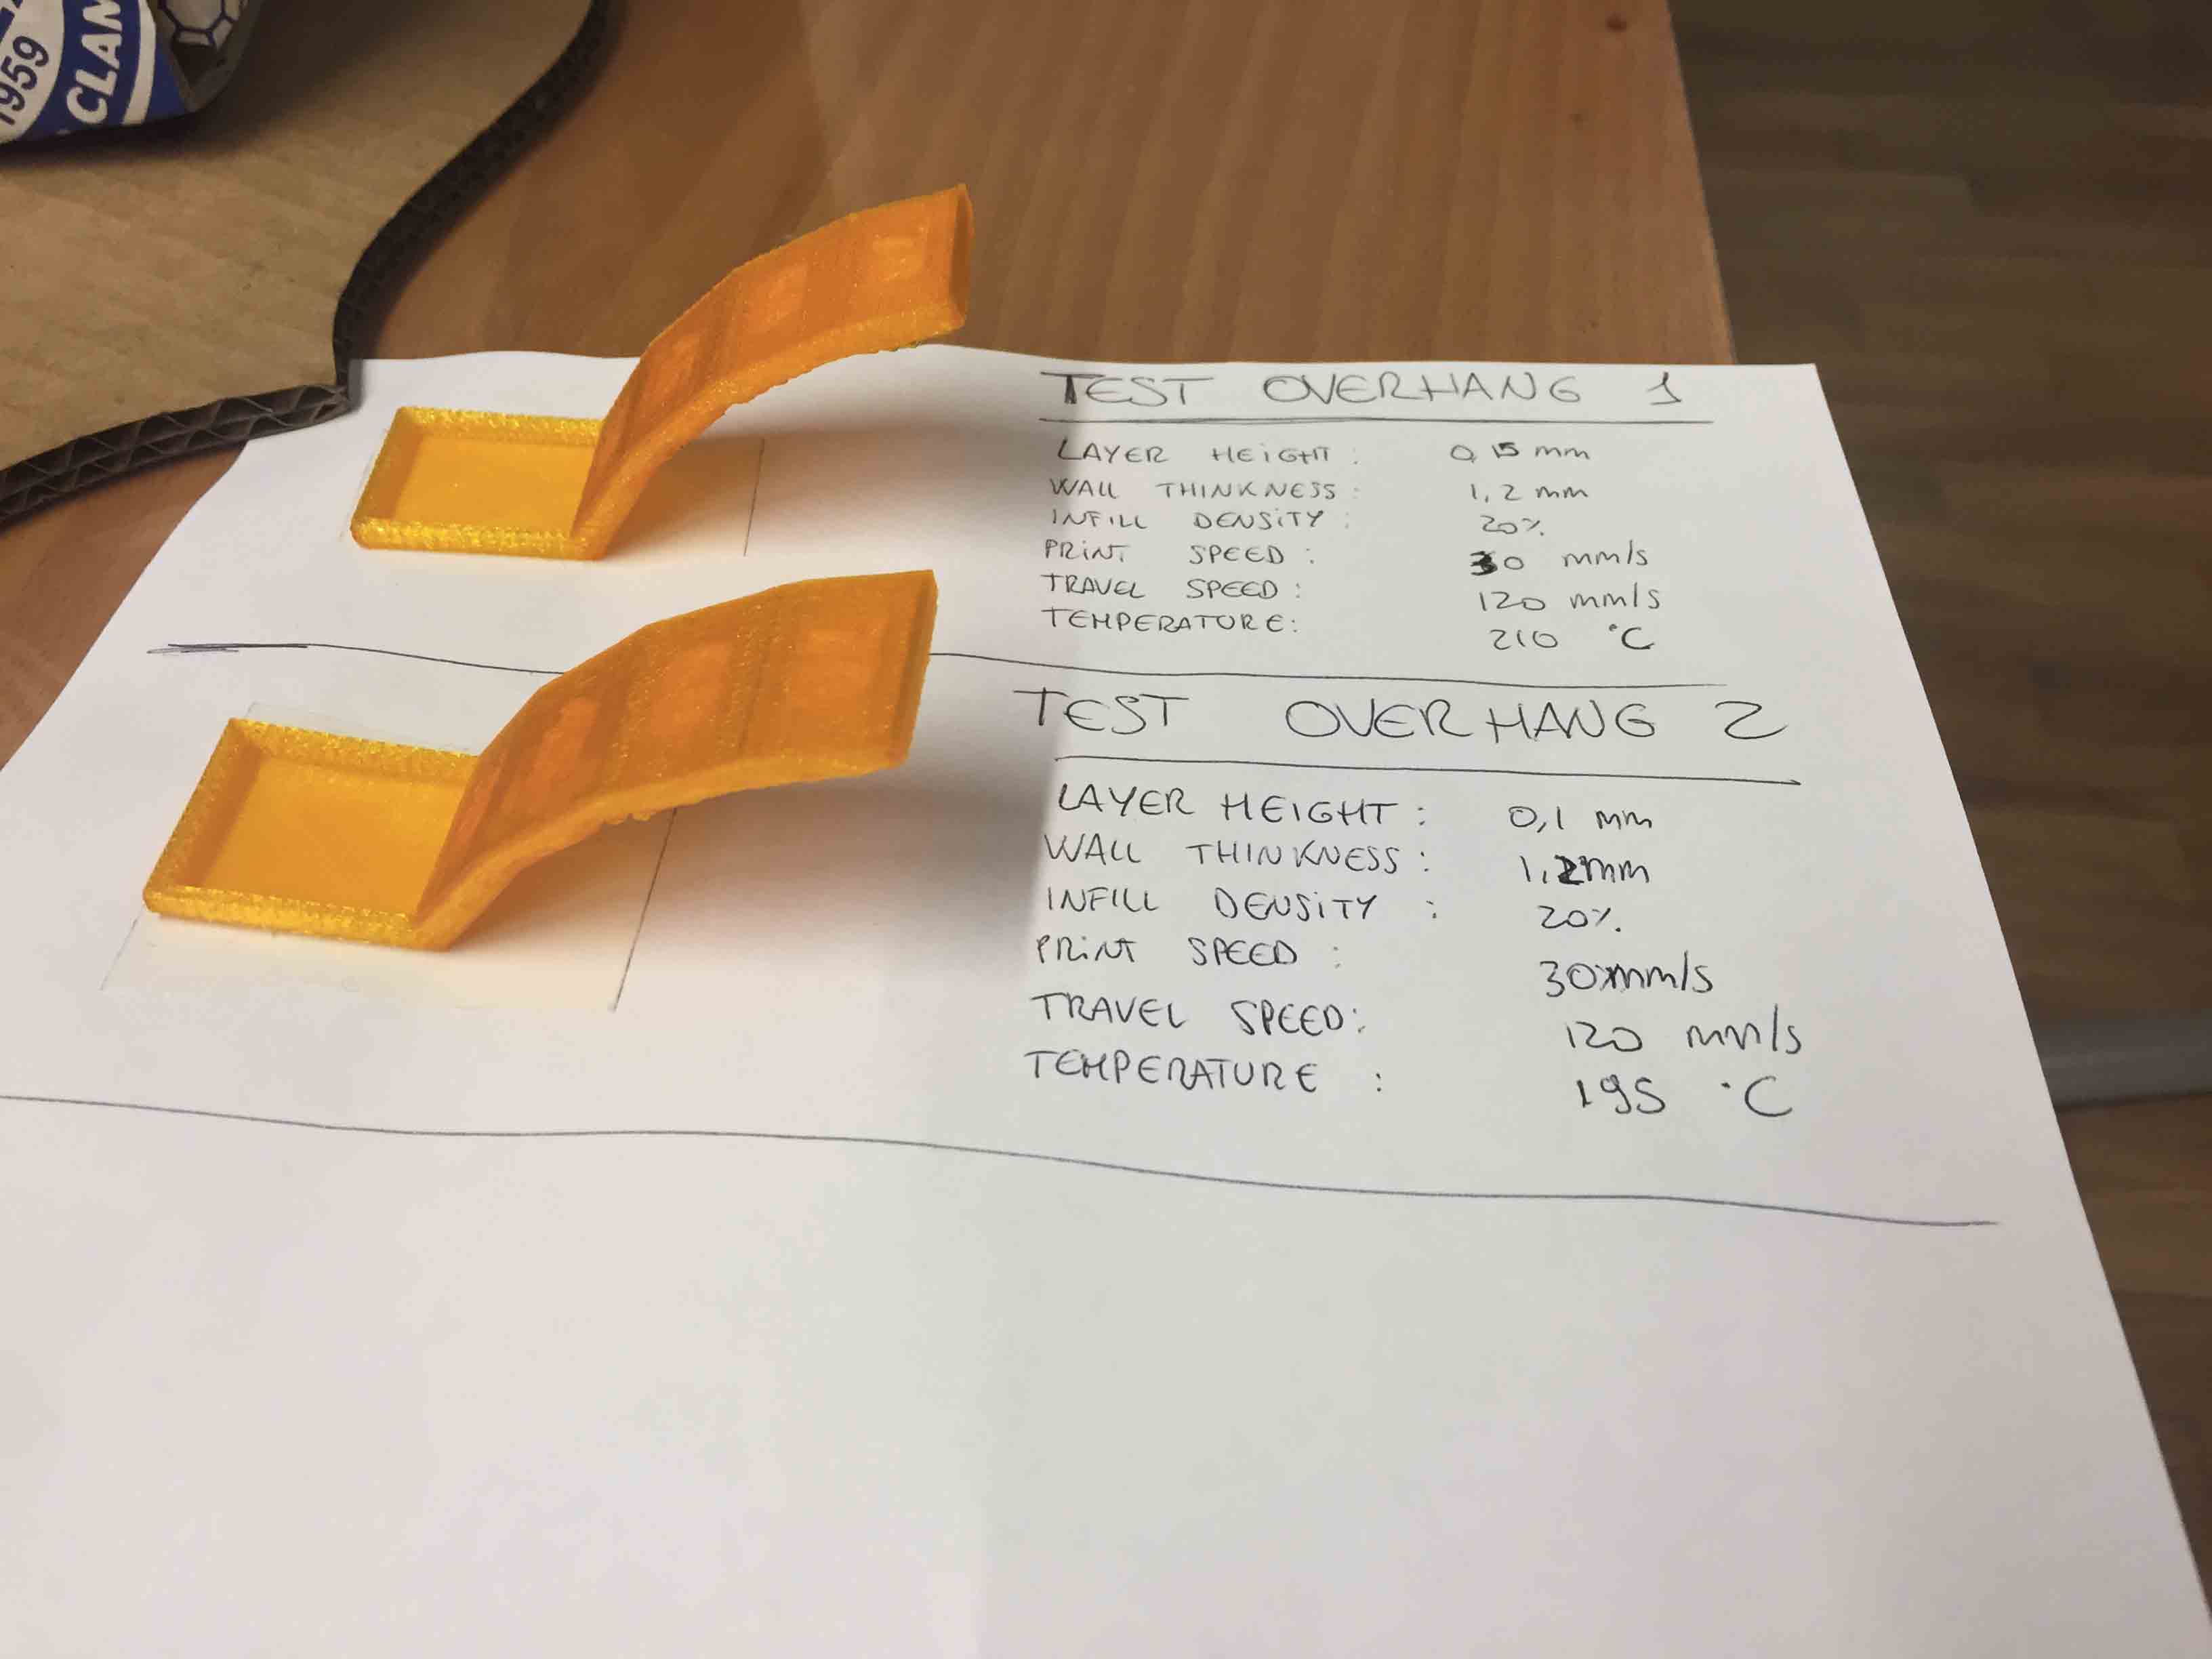 1959
CLAN
TEST OVERHANG 1
LAYER HEIGHT : 0,15 mm
WALL THINKNESS : 1,2 mm
INFILL DENSITY : 20%
PRINT SPEED : 30 mm/s
TRAVEL SPEED : 120 mm/s
TEMPERATURE: 210 °C
TEST OVERHANG 2
LAYER HEIGHT : 0,1 mm
WALL THINKNESS : 1,2mm
INFILL DENSITY : 20%
PRINT SPEED : 30mm/s
TRAVEL SPEED: 120 mm/s
TEMPERATURE : 195 °C